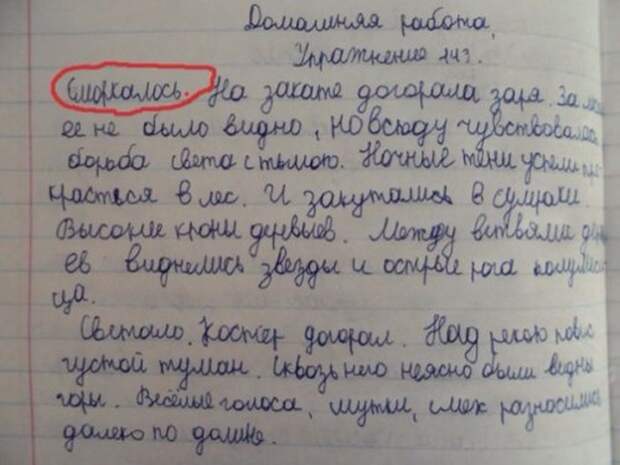 Домашняя работа,
Упражнение 143.
Сморкалось. На закате догорала заря. За
ее не было видно, но всюду чувствовалась
борьба света с тьмою. Ночные тени успели про
красться в лес. И закутались в сумраки.
Высокие кроны деревьев. Между ветвями дер
ев виднелись звезды и острые рога полумеся
ца.
Светало. Костёр догорал. Над рекою повис
густой туман. Сквозь него неясно были видны
горы. Весёлые голоса, шутки, смех разносились
далеко по долине.